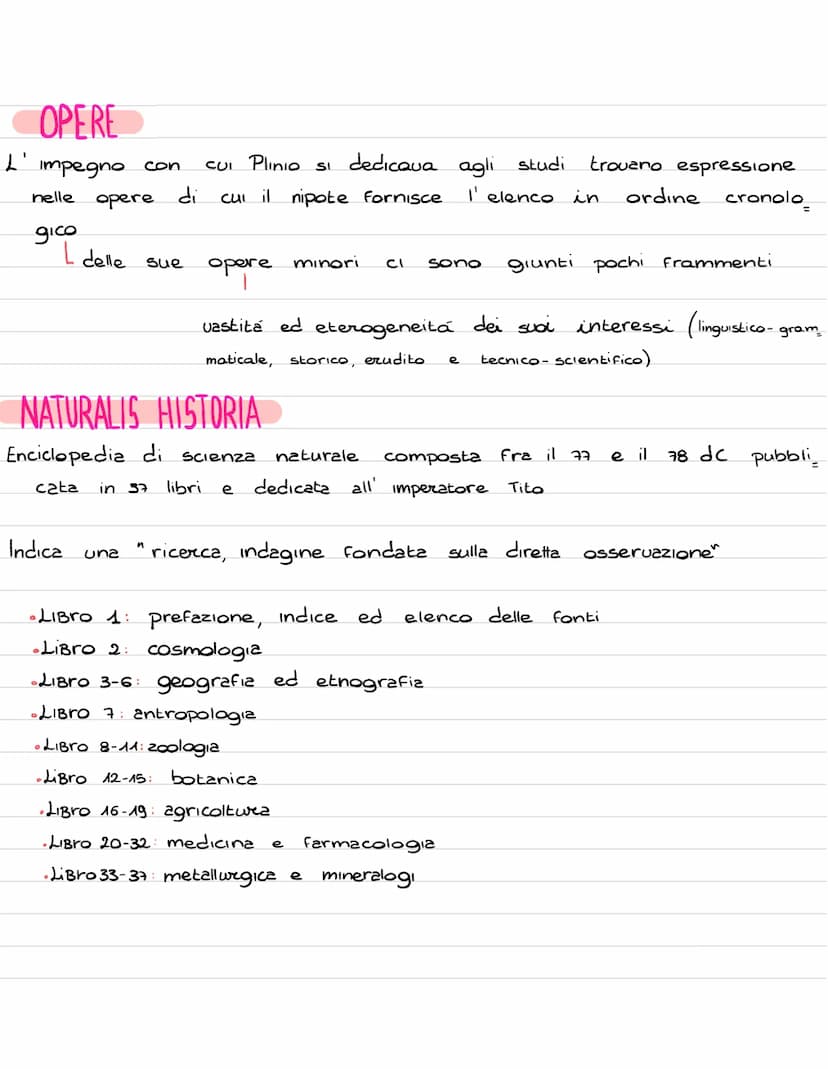 OPERE
L' impegno con cui Plinio si dedicava agli studi trovano espressione
nelle opere di cui il nipote fornisce l'elenco in ordine cronolo=
gico
delle sue opere minori ci sono giunti pochi frammenti
vastità ed eterogeneità dei suoi interessi (linguistico-gram=
maticale, storico, erudito e tecnico-scientifico)
NATURALIS HISTORIA
Enciclopedia di scienza naturale composta fra il 77 e il 78 dC pubbli=
cata in 37 libri e dedicata all'imperatore Tito
Indica una "ricerca, indagine fondata sulla diretta osservazione"
•Libro 1: prefazione, indice ed elenco delle fonti
•Libro 2: cosmologia
•Libro 3-6: geografia ed etnografia
•Libro 7: antropologia
•Libro 8-11: zoologia
•Libro 12-15: botanica
•Libro 16-19: agricoltura
•Libro 20-32: medicina e farmacologia
•Libro 33-37: metallurgica e mineralogi